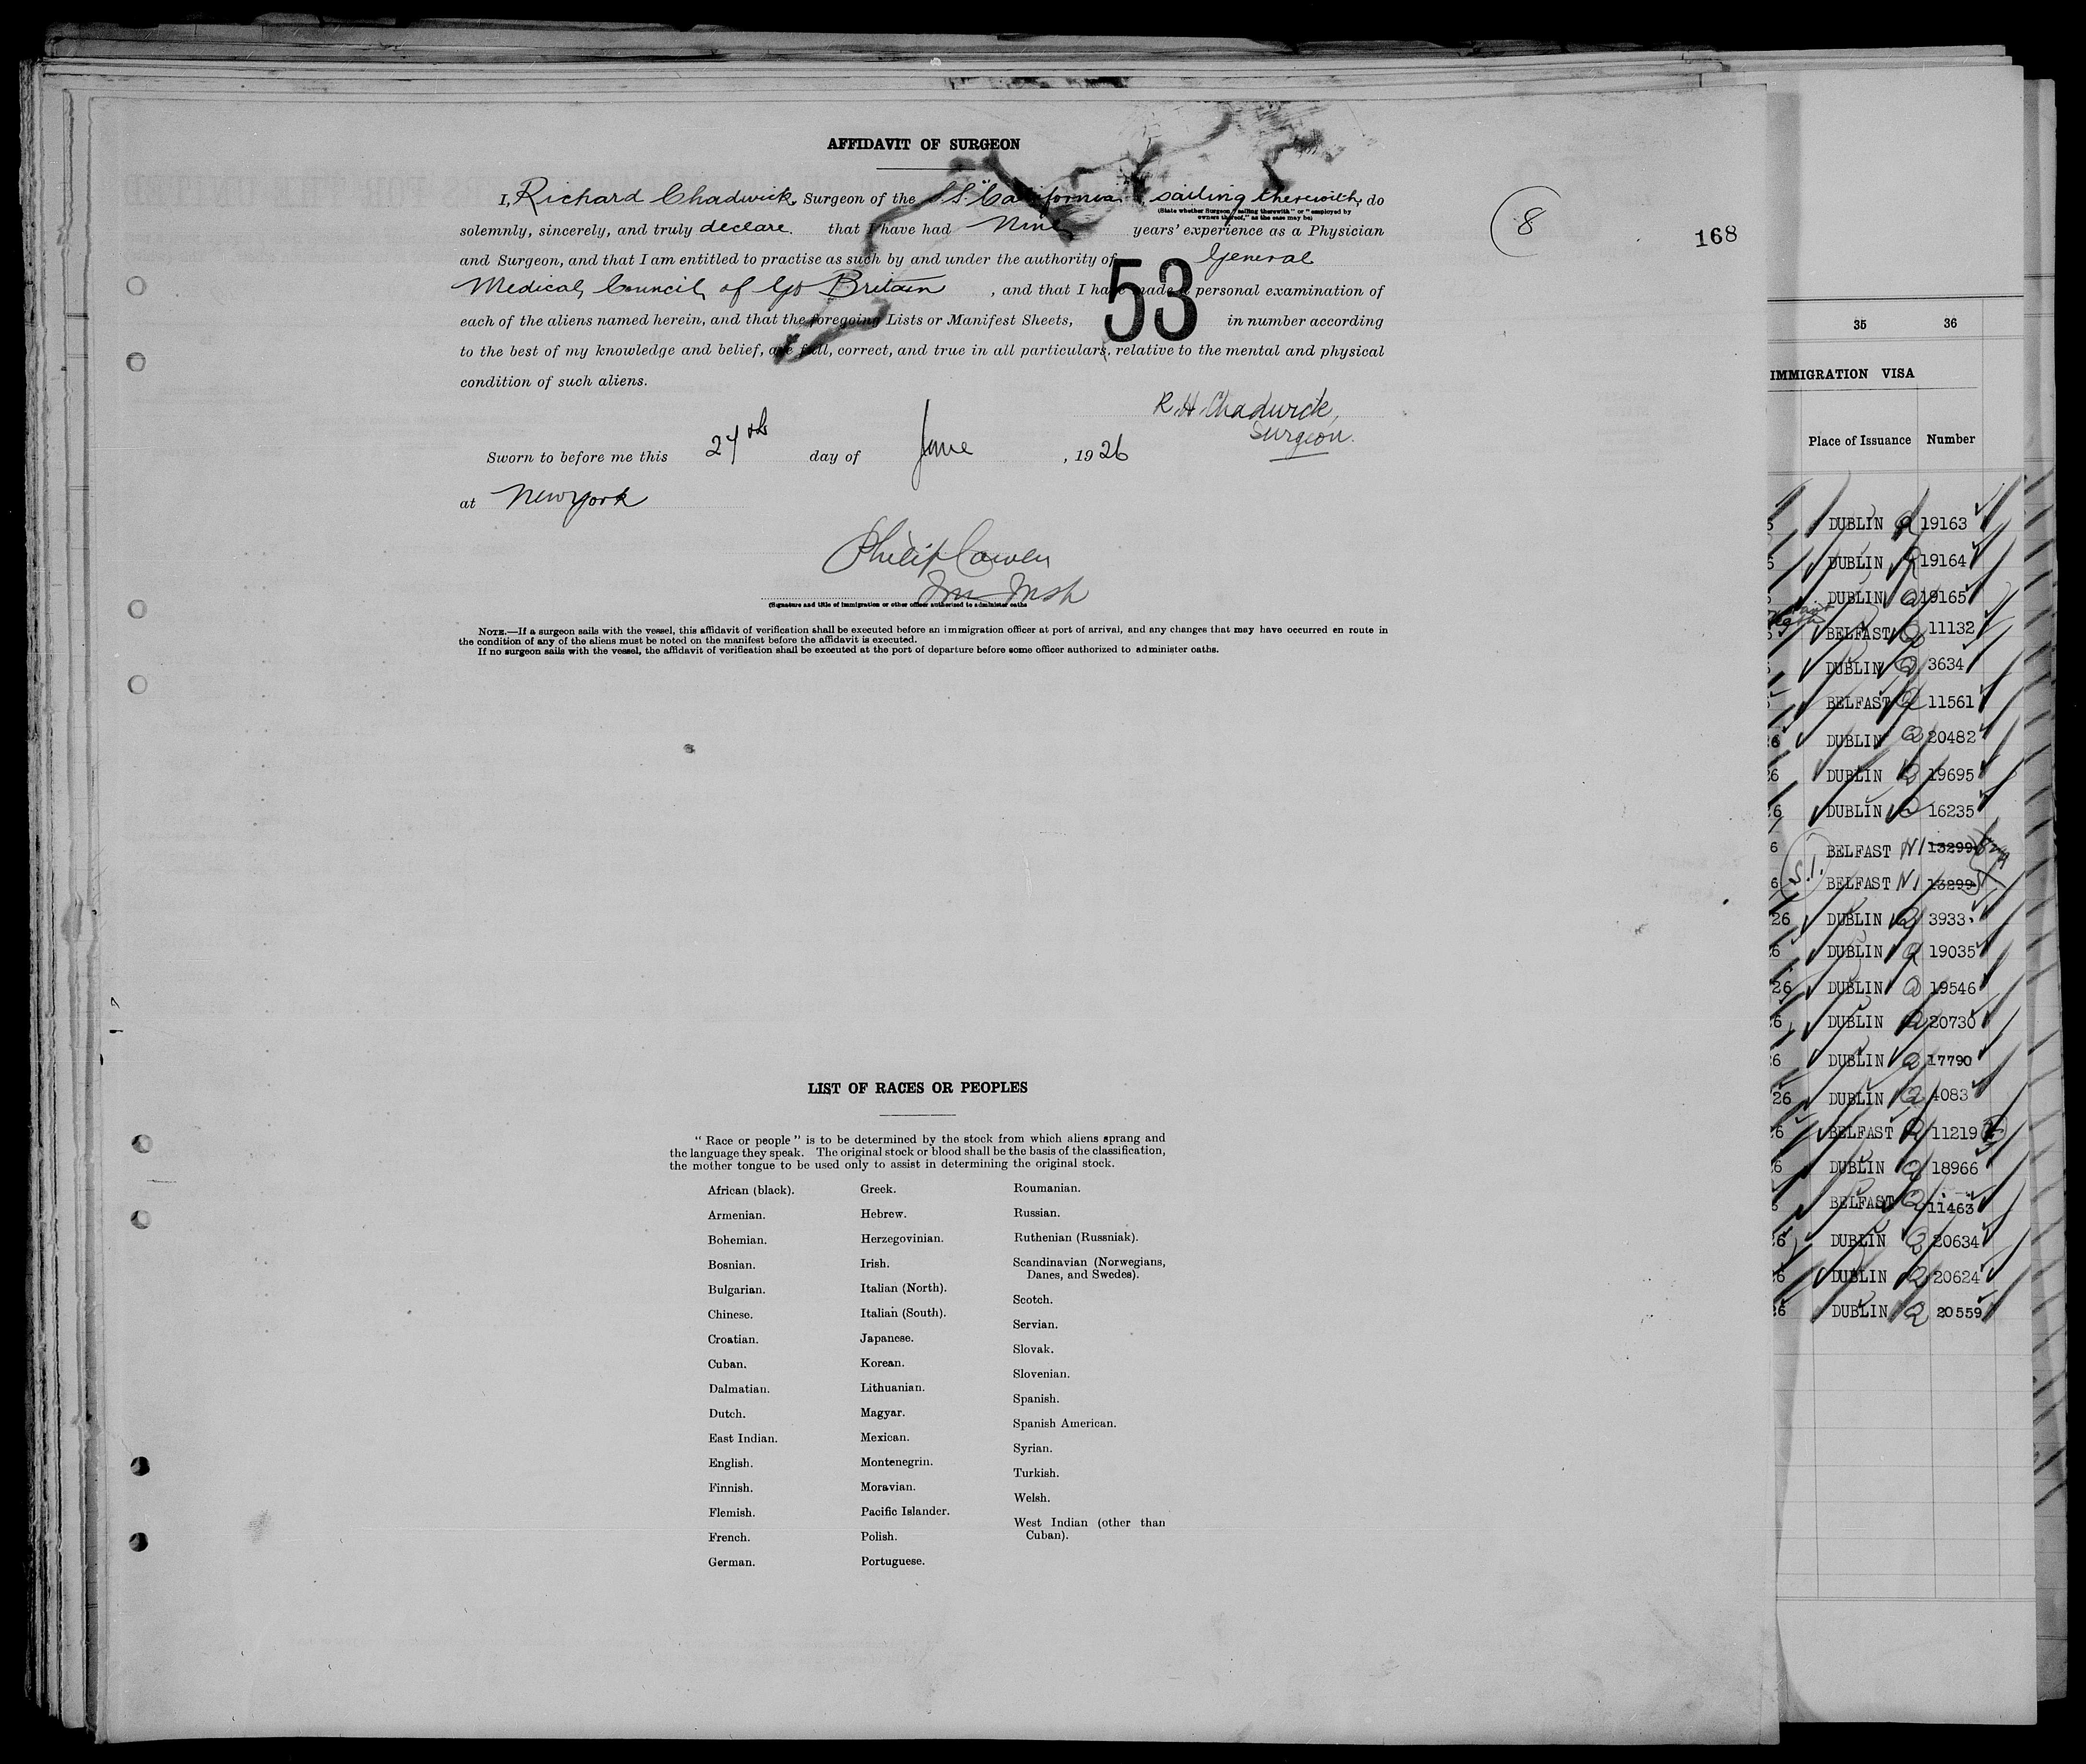 AFFIDAVIT OF SURGEON
I, Richard Chadwick, Surgeon of the SS. "California" sailing therewith, do
(State whether Surgeon "sailing therewith" or "employed by
owners thereof," as the case may be)
solemnly, sincerely, and truly declare. that I have had Nine years' experience as a Physician
and Surgeon, and that I am entitled to practise as such by and under the authority of General
Medical Council, of Gt Britain, and that I have made a personal examination of
each of the aliens named herein, and that the foregoing Lists or Manifest Sheets, 53 in number according
to the best of my knowledge and belief, are full, correct, and true in all particulars, relative to the mental and physical
condition of such aliens.
R. H. Chadwick,
Surgeon.
Sworn to before me this 27th day of June, 1926
at New York
Philip Cowen
(Signature and title of immigration or other officer authorized to administer oaths
NOTE.—If a surgeon sails with the vessel, this affidavit of verification shall be executed before an immigration officer at port of arrival, and any changes that may have occurred en route in
the condition of any of the aliens must be noted on the manifest before the affidavit is executed.
If no surgeon sails with the vessel, the affidavit of verification shall be executed at the port of departure before some officer authorized to administer oaths.
8
168
LIST OF RACES OR PEOPLES
"Race or people" is to be determined by the stock from which aliens sprang and
the language they speak. The original stock or blood shall be the basis of the classification,
the mother tongue to be used only to assist in determining the original stock.
African (black).
Armenian.
Bohemian.
Bosnian.
Bulgarian.
Chinese.
Croatian.
Cuban.
Dalmatian.
Dutch.
East Indian.
English.
Finnish.
Flemish.
French.
German.
Greek.
Hebrew.
Herzegovinian.
Irish.
Italian (North).
Italian (South).
Japanese.
Korean.
Lithuanian.
Magyar.
Mexican.
Montenegrin.
Moravian.
Pacific Islander.
Polish.
Portuguese.
Roumanian.
Russian.
Ruthenian (Russniak).
Scandinavian (Norwegians,
Danes, and Swedes).
Scotch.
Servian.
Slovak.
Slovenian.
Spanish.
Spanish American.
Syrian.
Turkish.
Welsh.
West Indian (other than
Cuban).
35 36
IMMIGRATION VISA
Place of Issuance Number
DUBLIN Q 19163
DUBLIN Q 19164
DUBLIN Q 19165
BELFAST Q 11132
DUBLIN Q 3634
BELFAST Q 11561
DUBLIN Q 20482
DUBLIN Q 19695
DUBLIN Q 16235
BELFAST N1 13299
S.I.
BELFAST N1 13299
26 DUBLIN Q 3933
26 DUBLIN Q 19035
26 DUBLIN Q 19546
26 DUBLIN Q 20730
26 DUBLIN Q 17790
26 DUBLIN Q 4083
BELFAST Q 11219
DUBLIN Q 18966
BELFAST Q 11463
DUBLIN Q 20634
DUBLIN Q 20624
DUBLIN Q 20559